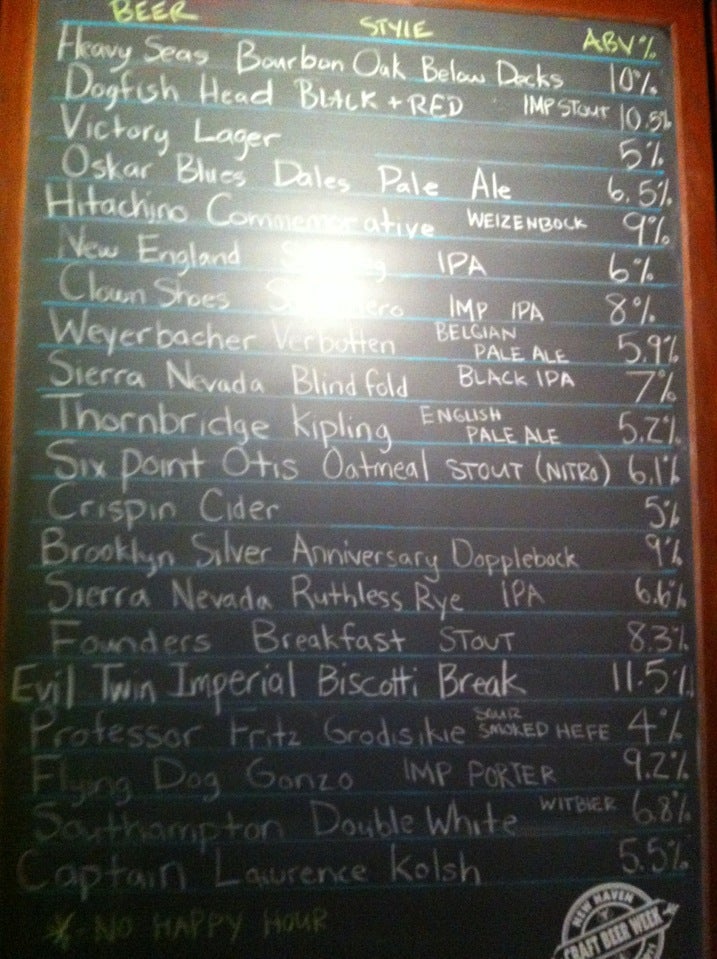 BEER STYLE ABV%
Heavy Seas Bourbon Oak Below Decks 10%
Dogfish Head BLACK + RED IMP STOUT 10.5%
Victory Lager 5%
Oskar Blues Dales Pale Ale 6.5%
Hitachino Commemorative WEIZENBOCK 9%
New England IPA 6%
Clown Shoes IMP IPA 8%
Weyerbacher Verboten BELGIAN PALE ALE 5.9%
Sierra Nevada Blindfold BLACK IPA 7%
Thornbridge Kipling ENGLISH PALE ALE 5.2%
Six point Otis Oatmeal STOUT (NITRO) 6.1%
Crispin Cider 5%
Brooklyn Silver Anniversary Dopplebock 9%
Sierra Nevada Ruthless Rye IPA 6.6%
Founders Breakfast STOUT 8.3%
Evil Twin Imperial Biscotti Break 11.5%
Professor Fritz Grodisikie SOUR SMOKED HEFE 4%
Flying Dog Gonzo IMP PORTER 9.2%
Southampton Double White WITBIER 6.8%
Captain Lawrence Kolsh 5.5%
* - NO HAPPY HOUR
NEW HAVEN
CRAFT BEER WEEK